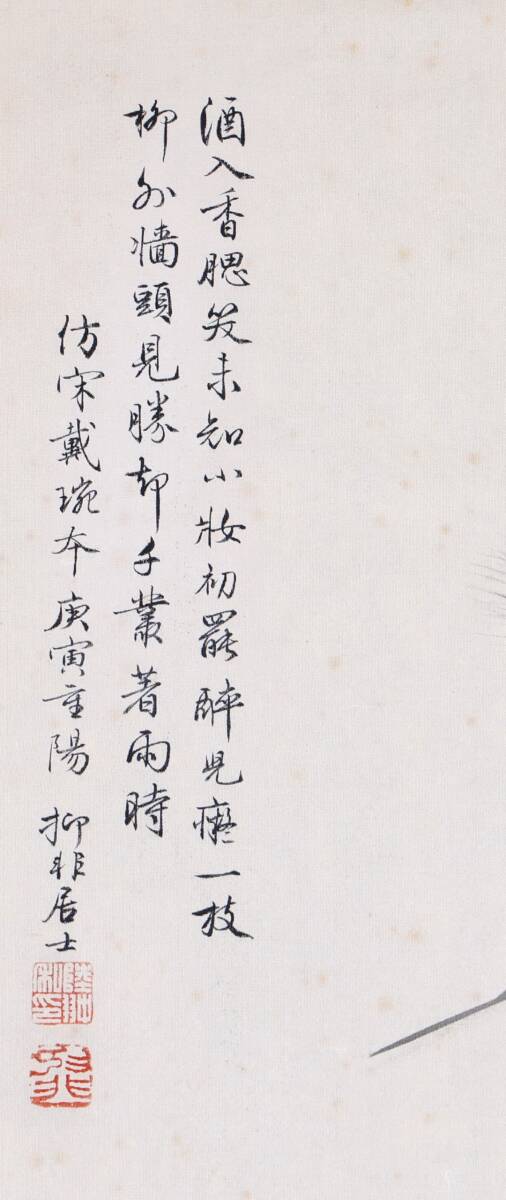 酒入香腮笑未知小妝初罷醉兒癡一枝
柳外牆頭見勝却千叢著雨時
仿宋戴琬本庚寅重陽 抑非居士